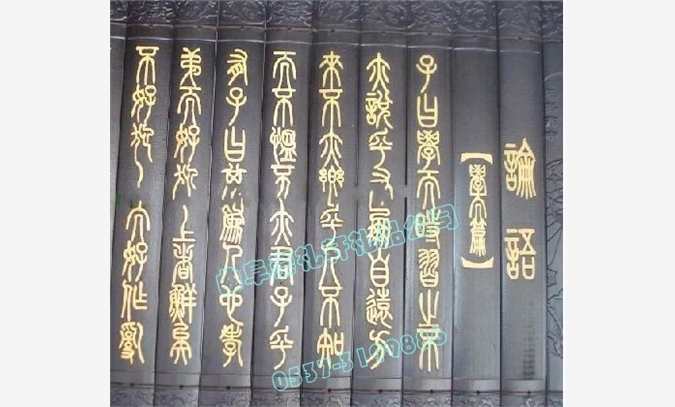 論語
【學而篇】
子曰學而時習之不
亦說乎有朋自遠方
來不亦樂乎人不知
而不慍不亦君子乎
有子曰其為人也孝
弟而好犯上者鮮矣
不好犯上而好作亂
曲阜 礼轩礼品公司